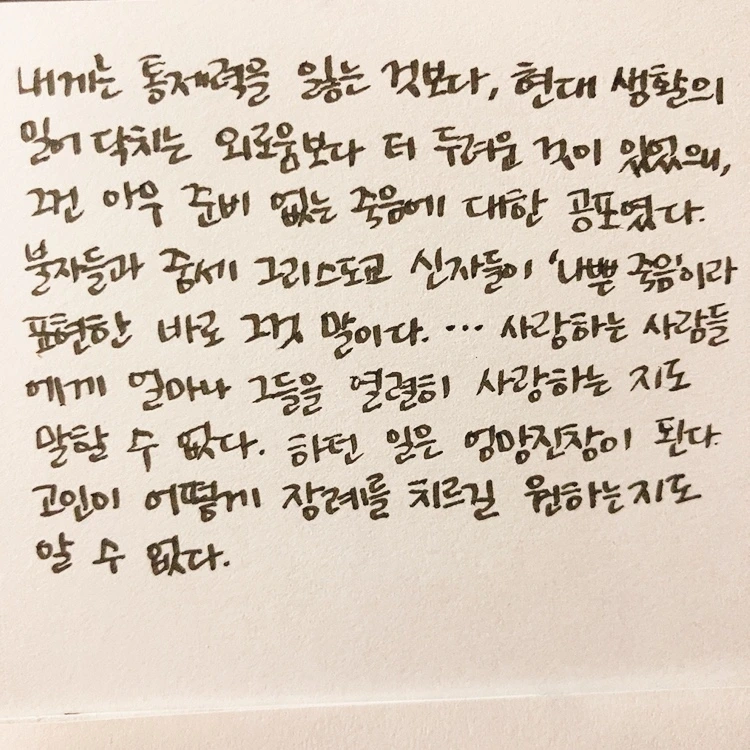 내게는 통제력을 잃는 것보다, 현대 생활의
밀어닥치는 외로움보다 더 두려운 것이 있었으니,
그건 아무 준비 없는 죽음에 대한 공포였다.
불자들과 중세 그리스도교 신자들이 '나쁜 죽음'이라
표현한 바로 그것 말이다. … 사랑하는 사람들
에게 얼마나 그들을 열렬히 사랑하는 지도
말할 수 없다. 하던 일은 엉망진창이 된다.
고인이 어떻게 장례를 치르길 원하는지도
알 수 없다.